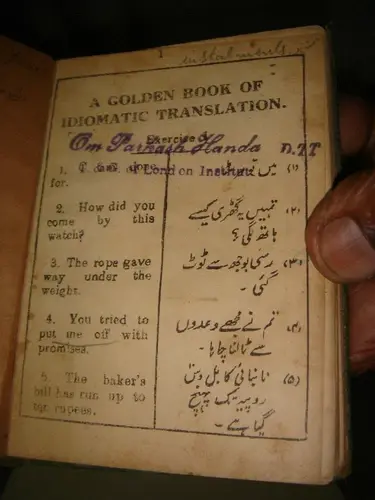 1
instalments
A GOLDEN BOOK OF
IDIOMATIC TRANSLATION.
Exercise
Om Parkash Handa D.T.T
1.
of London Institut
for.
میں
(۱)
2. How did you
come by this
watch?
تمہیں یہ گھڑی کیسے
ہاتھ لگی؟
(۲)
3. The rope gave
way under the
weight.
رسی بوجھ سے ٹوٹ
گئی۔
(۳)
4. You tried to
put me off with
promises.
تم نے مجھے وعدوں
سے ٹالنا چاہا۔
(۴)
5. The baker's
bill has run up to
ten rupees.
نانبائی کا بل دس
روپیہ تک پہنچ
گیا ہے۔
(۵)